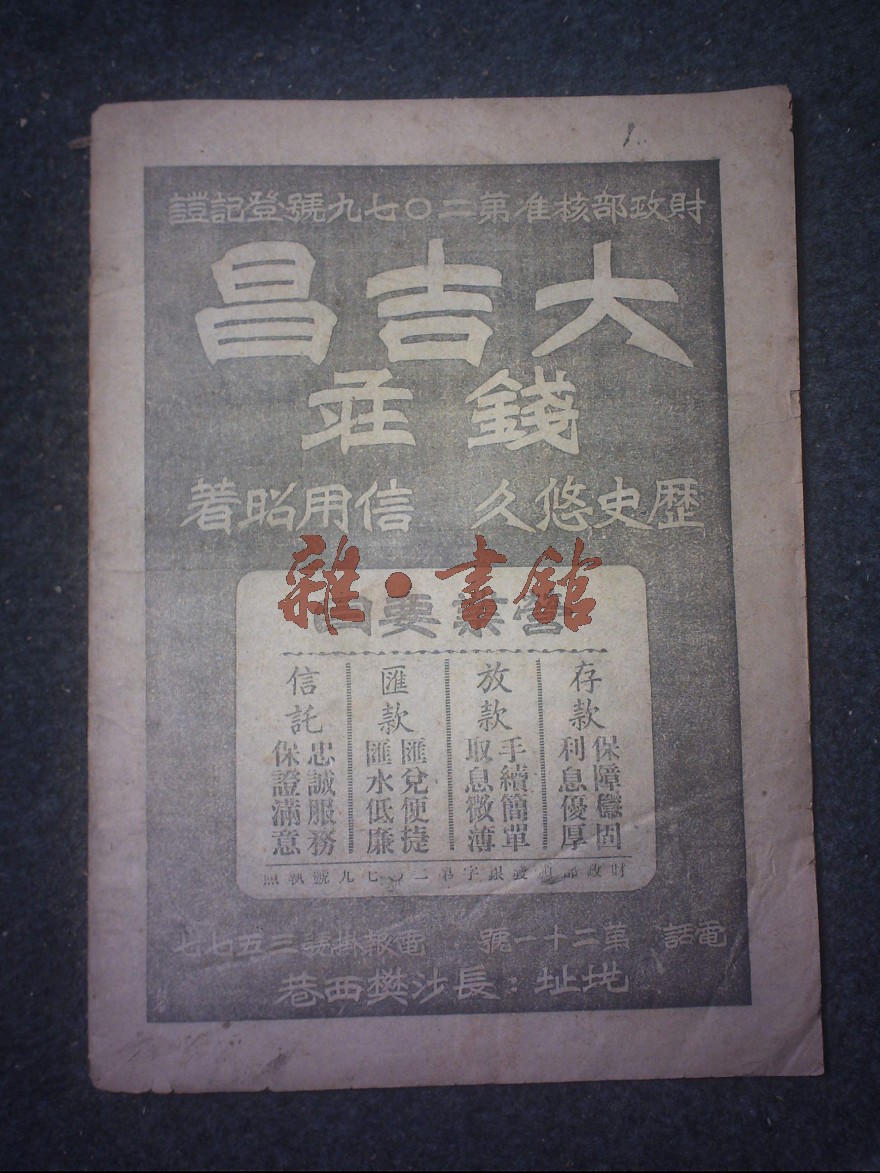 財政部核准第二〇七九號登記證
大吉昌
錢莊
歷史悠久　信用昭著
雜·書館
營業要目
存款
保障穩固
利息優厚
放款
手續簡單
取息微薄
匯款
匯兌便捷
匯水低廉
信託
忠誠服務
保證滿意
財政部
銀字第二〇七九號執照
電話　第二十一號　電報掛號三五七七
地址：長沙樊西巷